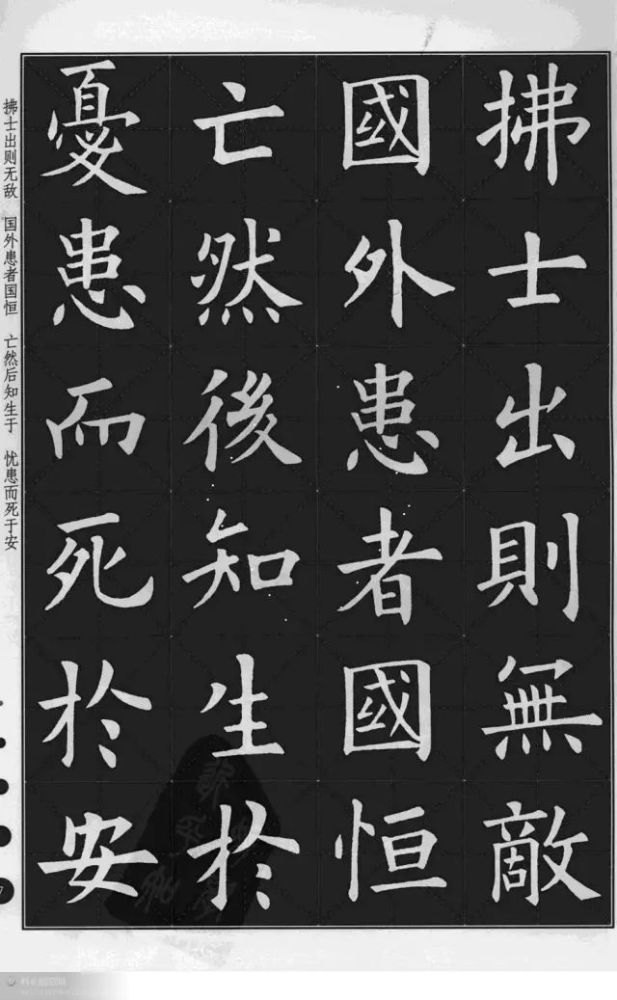 拂士出則無敵
國外患者國恒
亡然後知生於
憂患而死於安
拂士出则无敌 国外患者国恒 亡然后知生于 忧患而死于安